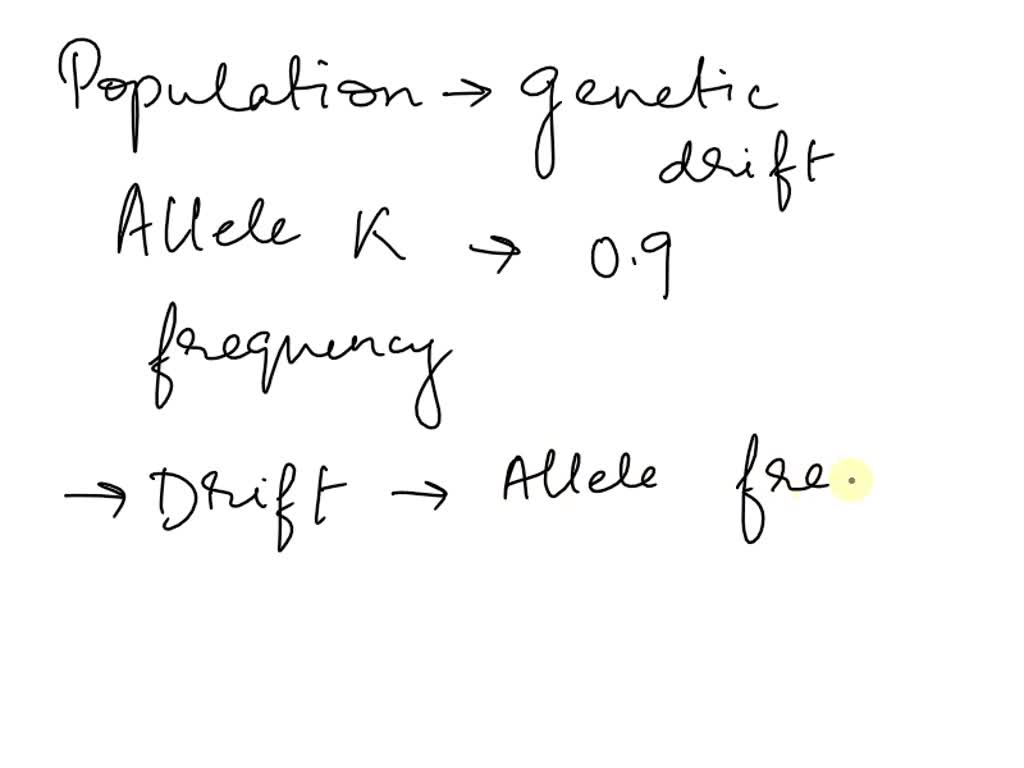 Population → genetic
drift
Allele K → 0.9
frequency
→ Drift → Allele fre